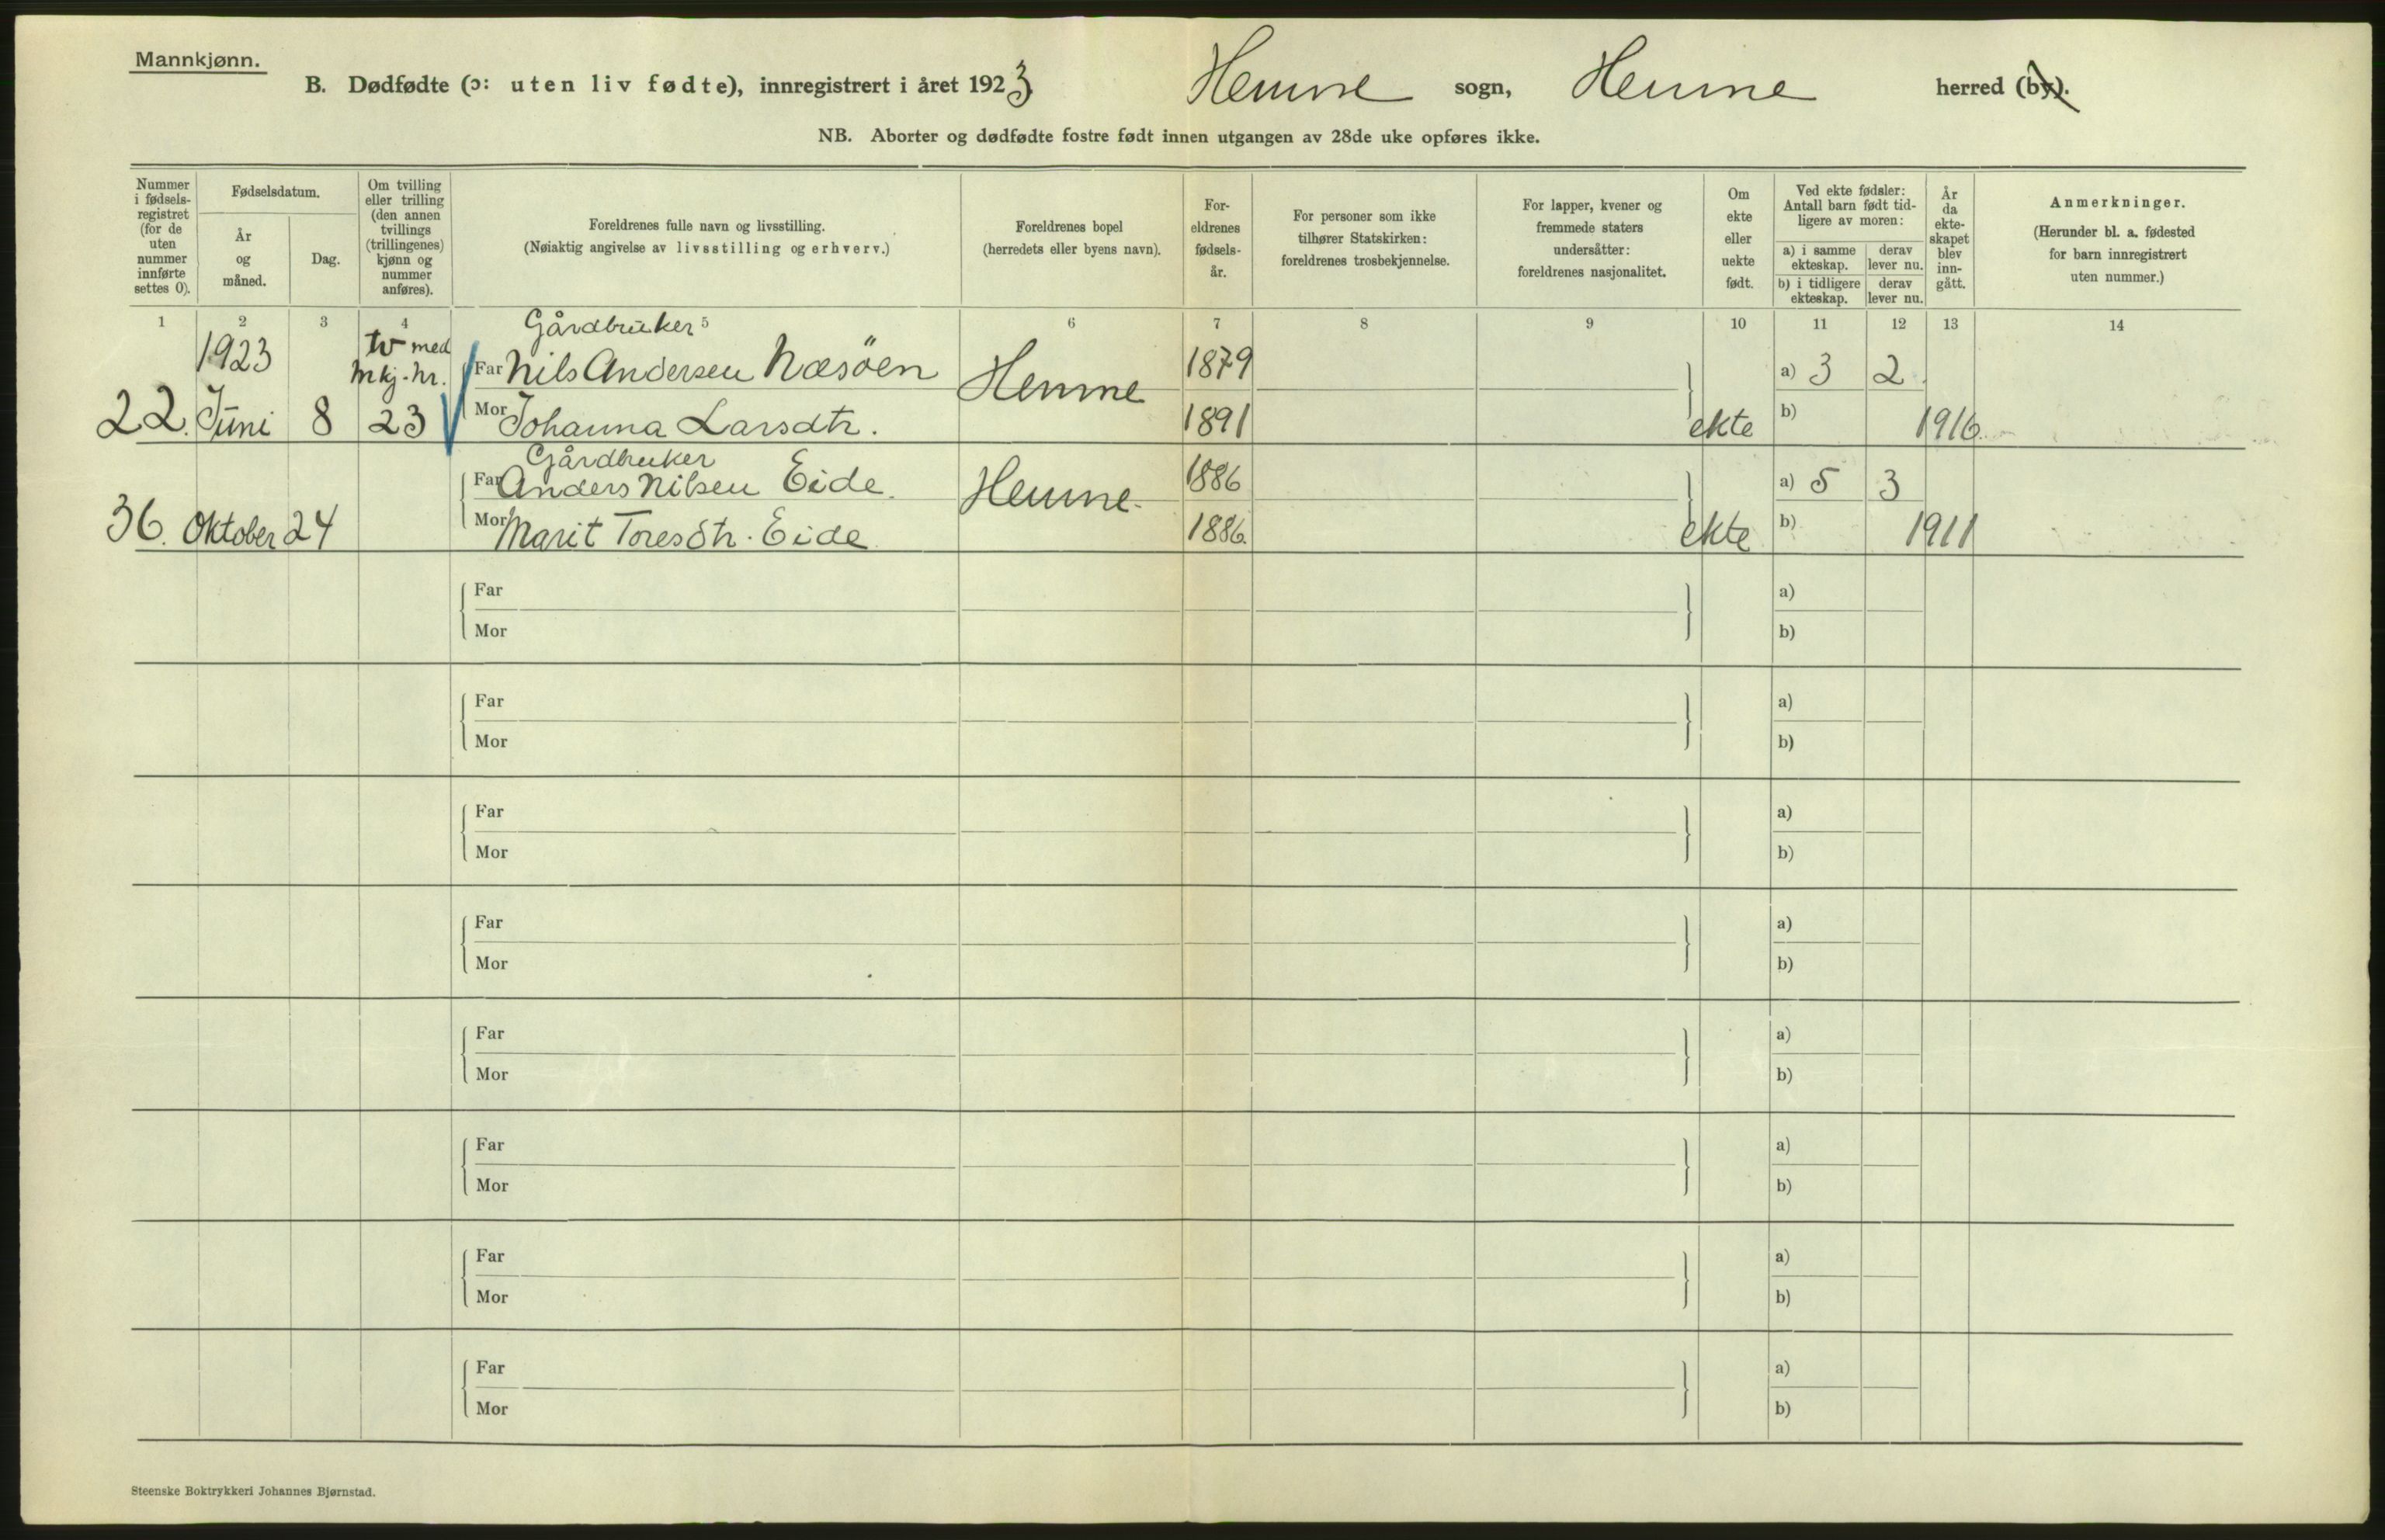 Mannkjønn.
B. Dødfødte (ɔ: uten liv fødte), innregistrert i året 1923 Hemne sogn, Hemne herred (by).
NB. Aborter og dødfødte fostre født innen utgangen av 28de uke opføres ikke.
Nummer i fødsels-registret (for de uten nummer innførte settes 0).
Fødselsdatum.
År og måned.
Dag.
Om tvilling eller trilling (den annen tvillings (trillingenes) kjønn og nummer anføres).
Foreldrenes fulle navn og livsstilling.
(Nøiaktig angivelse av livsstilling og erhverv.)
Foreldrenes bopel
(herredets eller byens navn).
For-eldrenes fødsels-år.
For personer som ikke tilhører Statskirken: foreldrenes trosbekjennelse.
For lapper, kvener og fremmede staters undersåtter: foreldrenes nasjonalitet.
Om ekte eller uekte født.
Ved ekte fødsler: Antall barn født tid-ligere av moren:
a) i samme ekteskap. derav lever nu.
b) i tidligere ekteskap. derav lever nu.
År da ekte-skapet blev inn-gått.
Anmerkninger.
(Herunder bl. a. fødested for barn innregistrert uten nummer.)
1 2 3 4 5 6 7 8 9 10 11 12 13 14
1923 tv med Gårdbruker
mkj. nr. Far Nils Andersen Næsöen Hemne 1879 a) 3 2
22. Juni 8 23 Mor Johanna Larsdtr. 1891 ekte b) 1916
Gårdbruker
Far Anders Nilsen Eide. Hemne. 1886 a) 5 3
36. Oktober 24 Mor Marit Toresdtr. Eide 1886. ekte b) 1911
Far a)
Mor b)
Far a)
Mor b)
Far a)
Mor b)
Far a)
Mor b)
Far a)
Mor b)
Far a)
Mor b)
Far a)
Mor b)
Far a)
Mor b)
Steenske Boktrykkeri Johannes Bjørnstad.